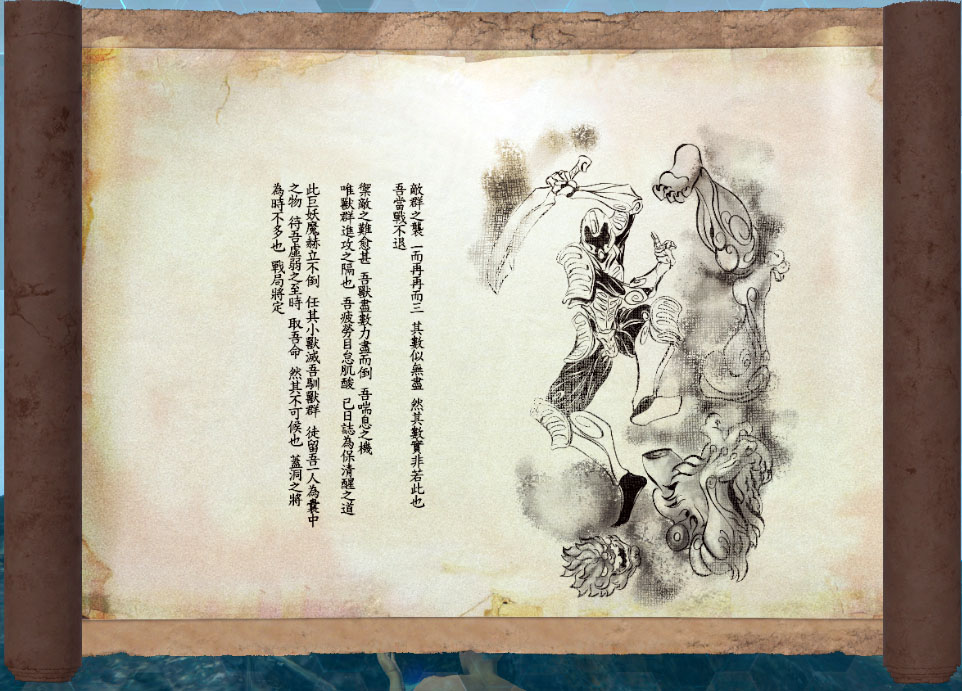 敵群之襲 一而再再而三 其數似無盡 然其數實非若此也
吾當戰不退
禦敵之難愈甚 吾獸盡數力盡而倒 吾喘息之機
唯獸群進攻之隔也 吾疲勞目怠肌酸 已日誌為保清醒之道
此巨妖魔赫立不倒 任其小獸滅吾馴獸群 徒留吾一人為囊中
之物 待吾虛弱之至時 取吾命 然其不可候也 蓋洞之將
為時不多也 戰局將定